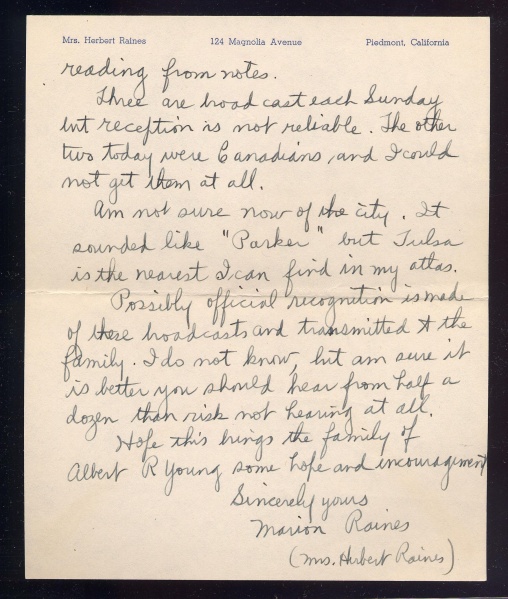 Mrs. Herbert Raines 124 Magnolia Avenue Piedmont, California
reading from notes.
Three are broadcast each Sunday
but reception is not reliable. The other
two today were Canadians, and I could
not get them at all.
Am not sure now of the city. It
sounded like "Parker" but Tulsa
is the nearest I can find in my atlas.
Possibly official recognition is made
of these broadcasts and transmitted to the
family. I do not know, but am sure it
is better you should hear from half a
dozen than risk not hearing at all.
Hope this brings the family of
Albert R Young some hope and encouragement
Sincerely yours
Marion Raines
(Mrs. Herbert Raines)